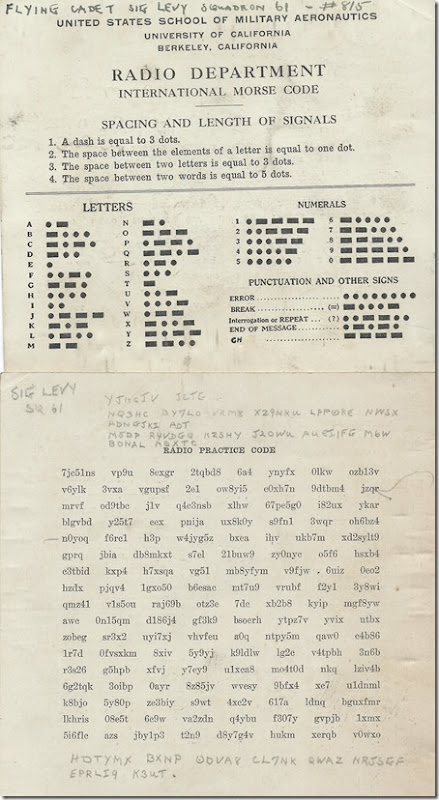 FLYING CADET SIG LEVY SQUADRON 61 - #815
UNITED STATES SCHOOL OF MILITARY AERONAUTICS
UNIVERSITY OF CALIFORNIA
BERKELEY, CALIFORNIA
RADIO DEPARTMENT
INTERNATIONAL MORSE CODE
SPACING AND LENGTH OF SIGNALS
1. A dash is equal to 3 dots.
2. The space between the elements of a letter is equal to one dot.
3. The space between two letters is equal to 3 dots.
4. The space between two words is equal to 5 dots.
LETTERS
A N
B O
C P
D Q
E R
F S
G T
H U
I V
J W
K X
L Y
M Z
NUMERALS
1 6
2 7
3 8
4 9
5 0
PUNCTUATION AND OTHER SIGNS
ERROR
BREAK (=)
Interrogation or REPEAT (?)
END OF MESSAGE
GH
SIG LEVY
SQ 61
RADIO PRACTICE CODE
7jc51ns vp9u 8exgr 2tqbd8 6a4 ynyfx 0lkw ozb13v
v6ylk 3vxa vgupsf 2e1 ow8yi5 c0xh7n 9dtbm4 jzqr
mrvf od9tbc jlv q4e3nsb xlhw 67pe5g0 i82ux ykar
blgvbd y25t7 eex pnija ux8k0y s9fn1 3wqr oh6bz4
n0yoq f6rc1 h3p w4jyg5z bxea ihv ukb7m xd2sylt9
gprq jbia db8mkxt s7el 21buw9 zy0nyc o5f6 hsxb4
c3tbid kxp4 h7xsqa vg51 mb8yfym v9fjw 6uiz 0eo2
hzdx pjqv4 1gxo50 b6esac mt7u9 vrubf f2y1 3y8wi
qmz41 v1s5ou raj69b otz3e 7dc xb2b8 kyip mgf8yw
awe 0n15qm d186j4 gf3k9 bsoerh ytpz7v yvix utbx
zobeg sr3x2 uyi7xj vhvfeu a0q ntpy5m qaw0 e4b86
1r7d 0fvsxkm 8xiv 5y9yj k9ldlw lg2c v4tpbh 3n6b
r3s26 g5hpb xfvj y7ey9 u1xea8 mo4t0d nkq lziv4b
6g2tqk 3oibp 0ayr 8z85jv wvesy 9bfx4 xe7 u1dnml
k8bjo 5y80p ze3biy s9wt 4xc2v 617a ldnq bguxfmr
lkhris 08e5t 6c9w va2zdn q4ybu f307y gvpjb 1xmx
5i6fle azs jby1p3 t2n9 d8y7g4v hukm xerqb v0wxo
HDTYMX BXNP WDVA8 CL7NK QWAZ HRJSGF
EPRLI9 K3UT.